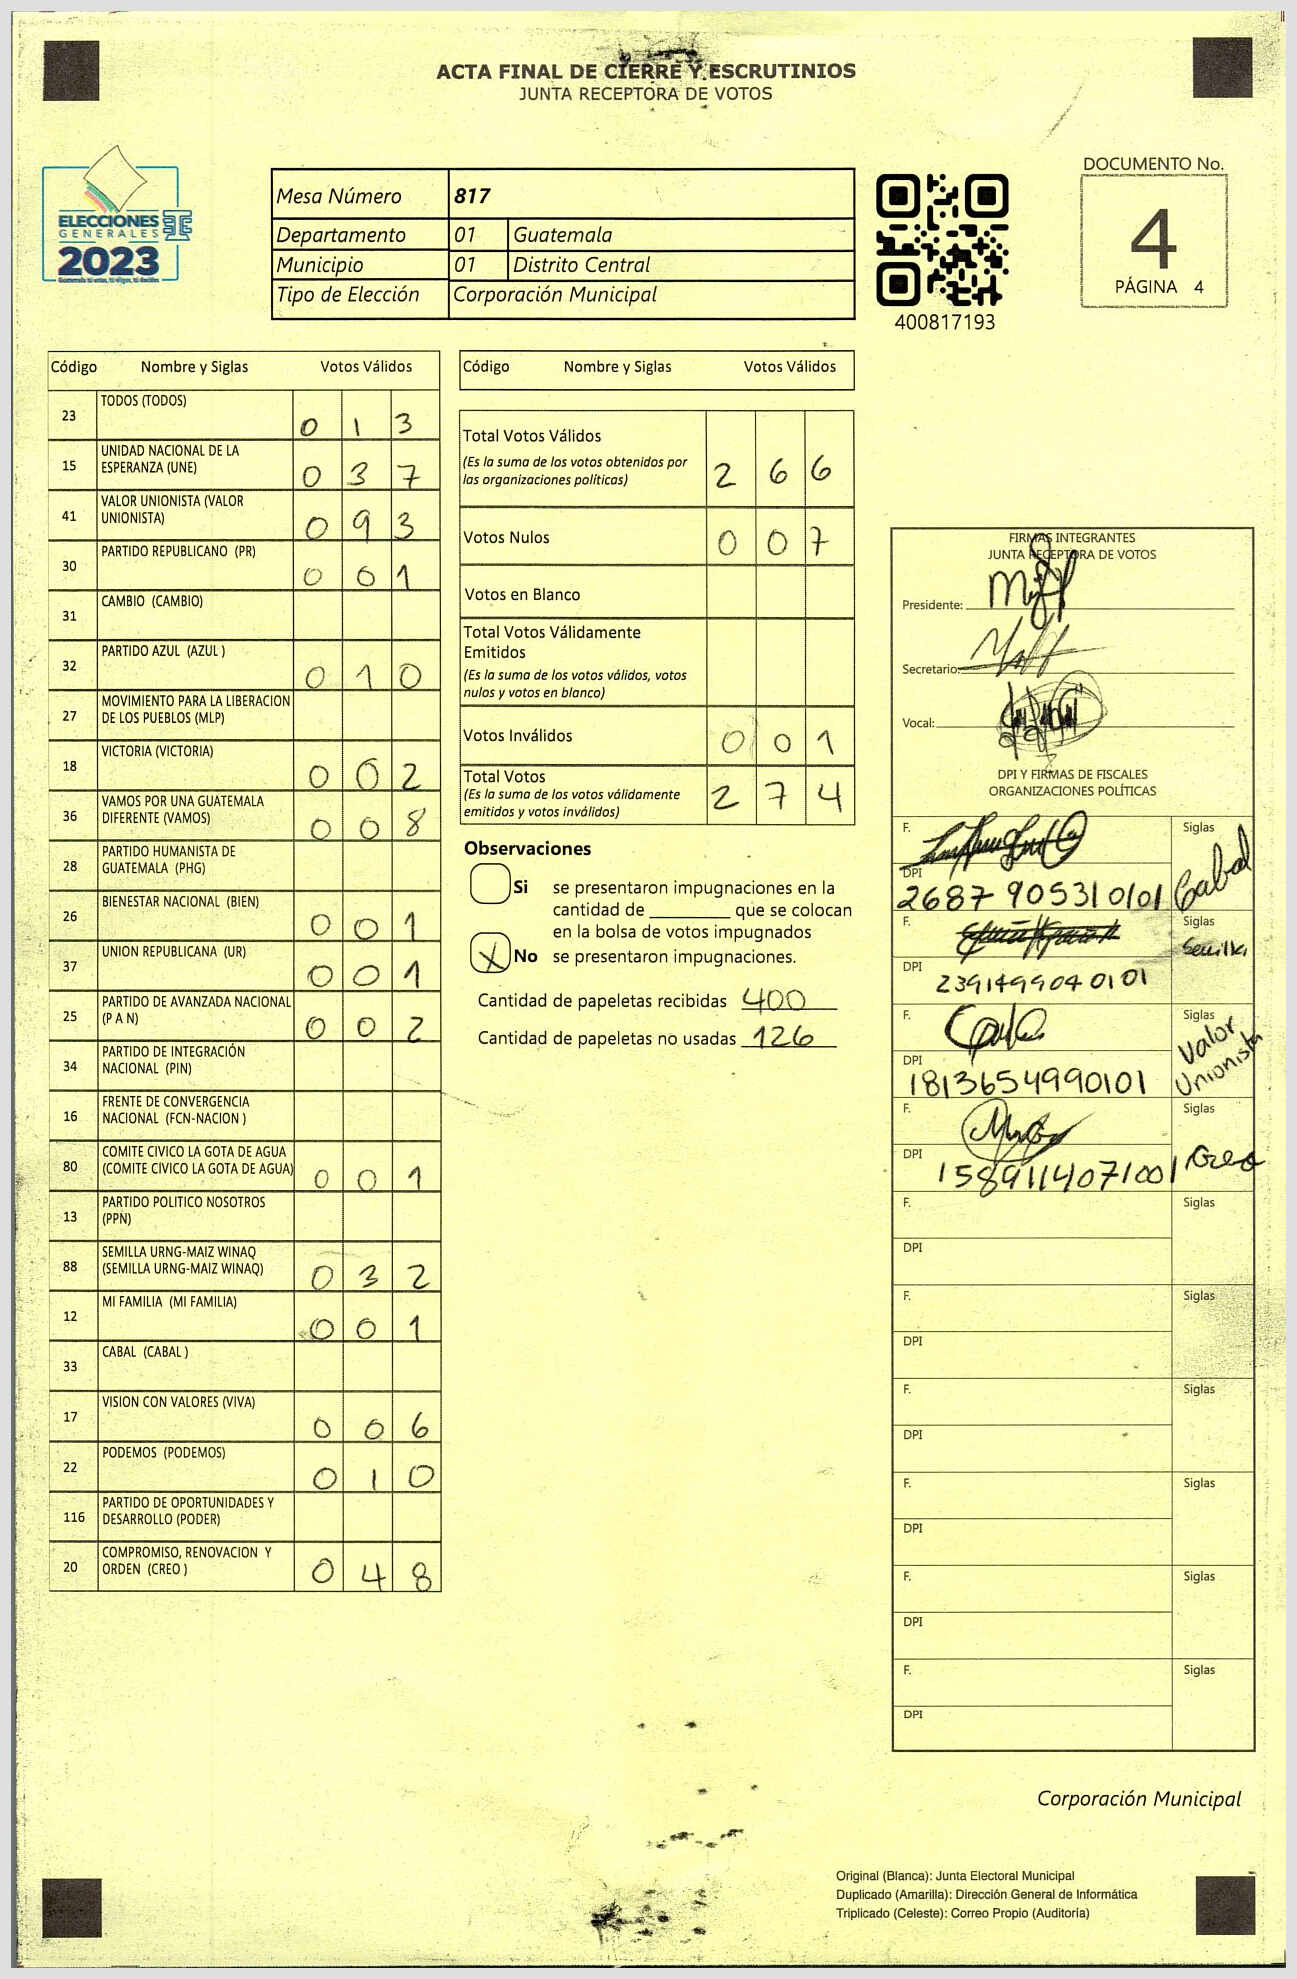 ACTA FINAL DE CIERRE Y ESCRUTINIOS
JUNTA RECEPTORA DE VOTOS
ELECCIONES
GENERALES
2023
Mesa Número 817
Departamento 01 Guatemala
Municipio 01 Distrito Central
Tipo de Elección Corporación Municipal
400817193
DOCUMENTO No.
4
PÁGINA 4
Código Nombre y Siglas Votos Válidos
23 TODOS (TODOS) 0 1 3
15 UNIDAD NACIONAL DE LA
ESPERANZA (UNE) 0 3 7
41 VALOR UNIONISTA (VALOR
UNIONISTA) 0 9 3
30 PARTIDO REPUBLICANO (PR) 0 0 1
31 CAMBIO (CAMBIO)
32 PARTIDO AZUL (AZUL ) 0 1 0
27 MOVIMIENTO PARA LA LIBERACION
DE LOS PUEBLOS (MLP)
18 VICTORIA (VICTORIA) 0 0 2
36 VAMOS POR UNA GUATEMALA
DIFERENTE (VAMOS) 0 0 8
28 PARTIDO HUMANISTA DE
GUATEMALA (PHG)
26 BIENESTAR NACIONAL (BIEN) 0 0 1
37 UNION REPUBLICANA (UR) 0 0 1
25 PARTIDO DE AVANZADA NACIONAL
(P A N) 0 0 2
34 PARTIDO DE INTEGRACIÓN
NACIONAL (PIN)
16 FRENTE DE CONVERGENCIA
NACIONAL (FCN-NACION )
80 COMITE CIVICO LA GOTA DE AGUA
(COMITE CIVICO LA GOTA DE AGUA) 0 0 1
13 PARTIDO POLITICO NOSOTROS
(PPN)
88 SEMILLA URNG-MAIZ WINAQ
(SEMILLA URNG-MAIZ WINAQ) 0 3 2
12 MI FAMILIA (MI FAMILIA) 0 0 1
33 CABAL (CABAL )
17 VISION CON VALORES (VIVA) 0 0 6
22 PODEMOS (PODEMOS) 0 1 0
116 PARTIDO DE OPORTUNIDADES Y
DESARROLLO (PODER)
20 COMPROMISO, RENOVACION Y
ORDEN (CREO ) 0 4 8
Código Nombre y Siglas Votos Válidos
Total Votos Válidos
(Es la suma de los votos obtenidos por
las organizaciones políticas) 2 6 6
Votos Nulos 0 0 7
Votos en Blanco
Total Votos Válidamente
Emitidos
(Es la suma de los votos válidos, votos
nulos y votos en blanco)
Votos Inválidos 0 0 1
Total Votos
(Es la suma de los votos válidamente
emitidos y votos inválidos) 2 7 4
Observaciones
Si se presentaron impugnaciones en la
cantidad de ________ que se colocan
en la bolsa de votos impugnados
X No se presentaron impugnaciones.
Cantidad de papeletas recibidas 400
Cantidad de papeletas no usadas 126
FIRMAS INTEGRANTES
JUNTA RECEPTORA DE VOTOS
Presidente:
Secretario:
Vocal:
DPI Y FIRMAS DE FISCALES
ORGANIZACIONES POLÍTICAS
F. Siglas Cabal
DPI 2687 90531 0101
F. Siglas Semilla
DPI 2391499040101
F. Siglas Valor
Unionista
DPI 1813654990101
F. Siglas Creo
DPI 1589114071001
F. Siglas
DPI
F. Siglas
DPI
F. Siglas
DPI
F. Siglas
DPI
F. Siglas
DPI
F. Siglas
DPI
Corporación Municipal
Original (Blanca): Junta Electoral Municipal
Duplicado (Amarilla): Dirección General de Informática
Triplicado (Celeste): Correo Propio (Auditoría)